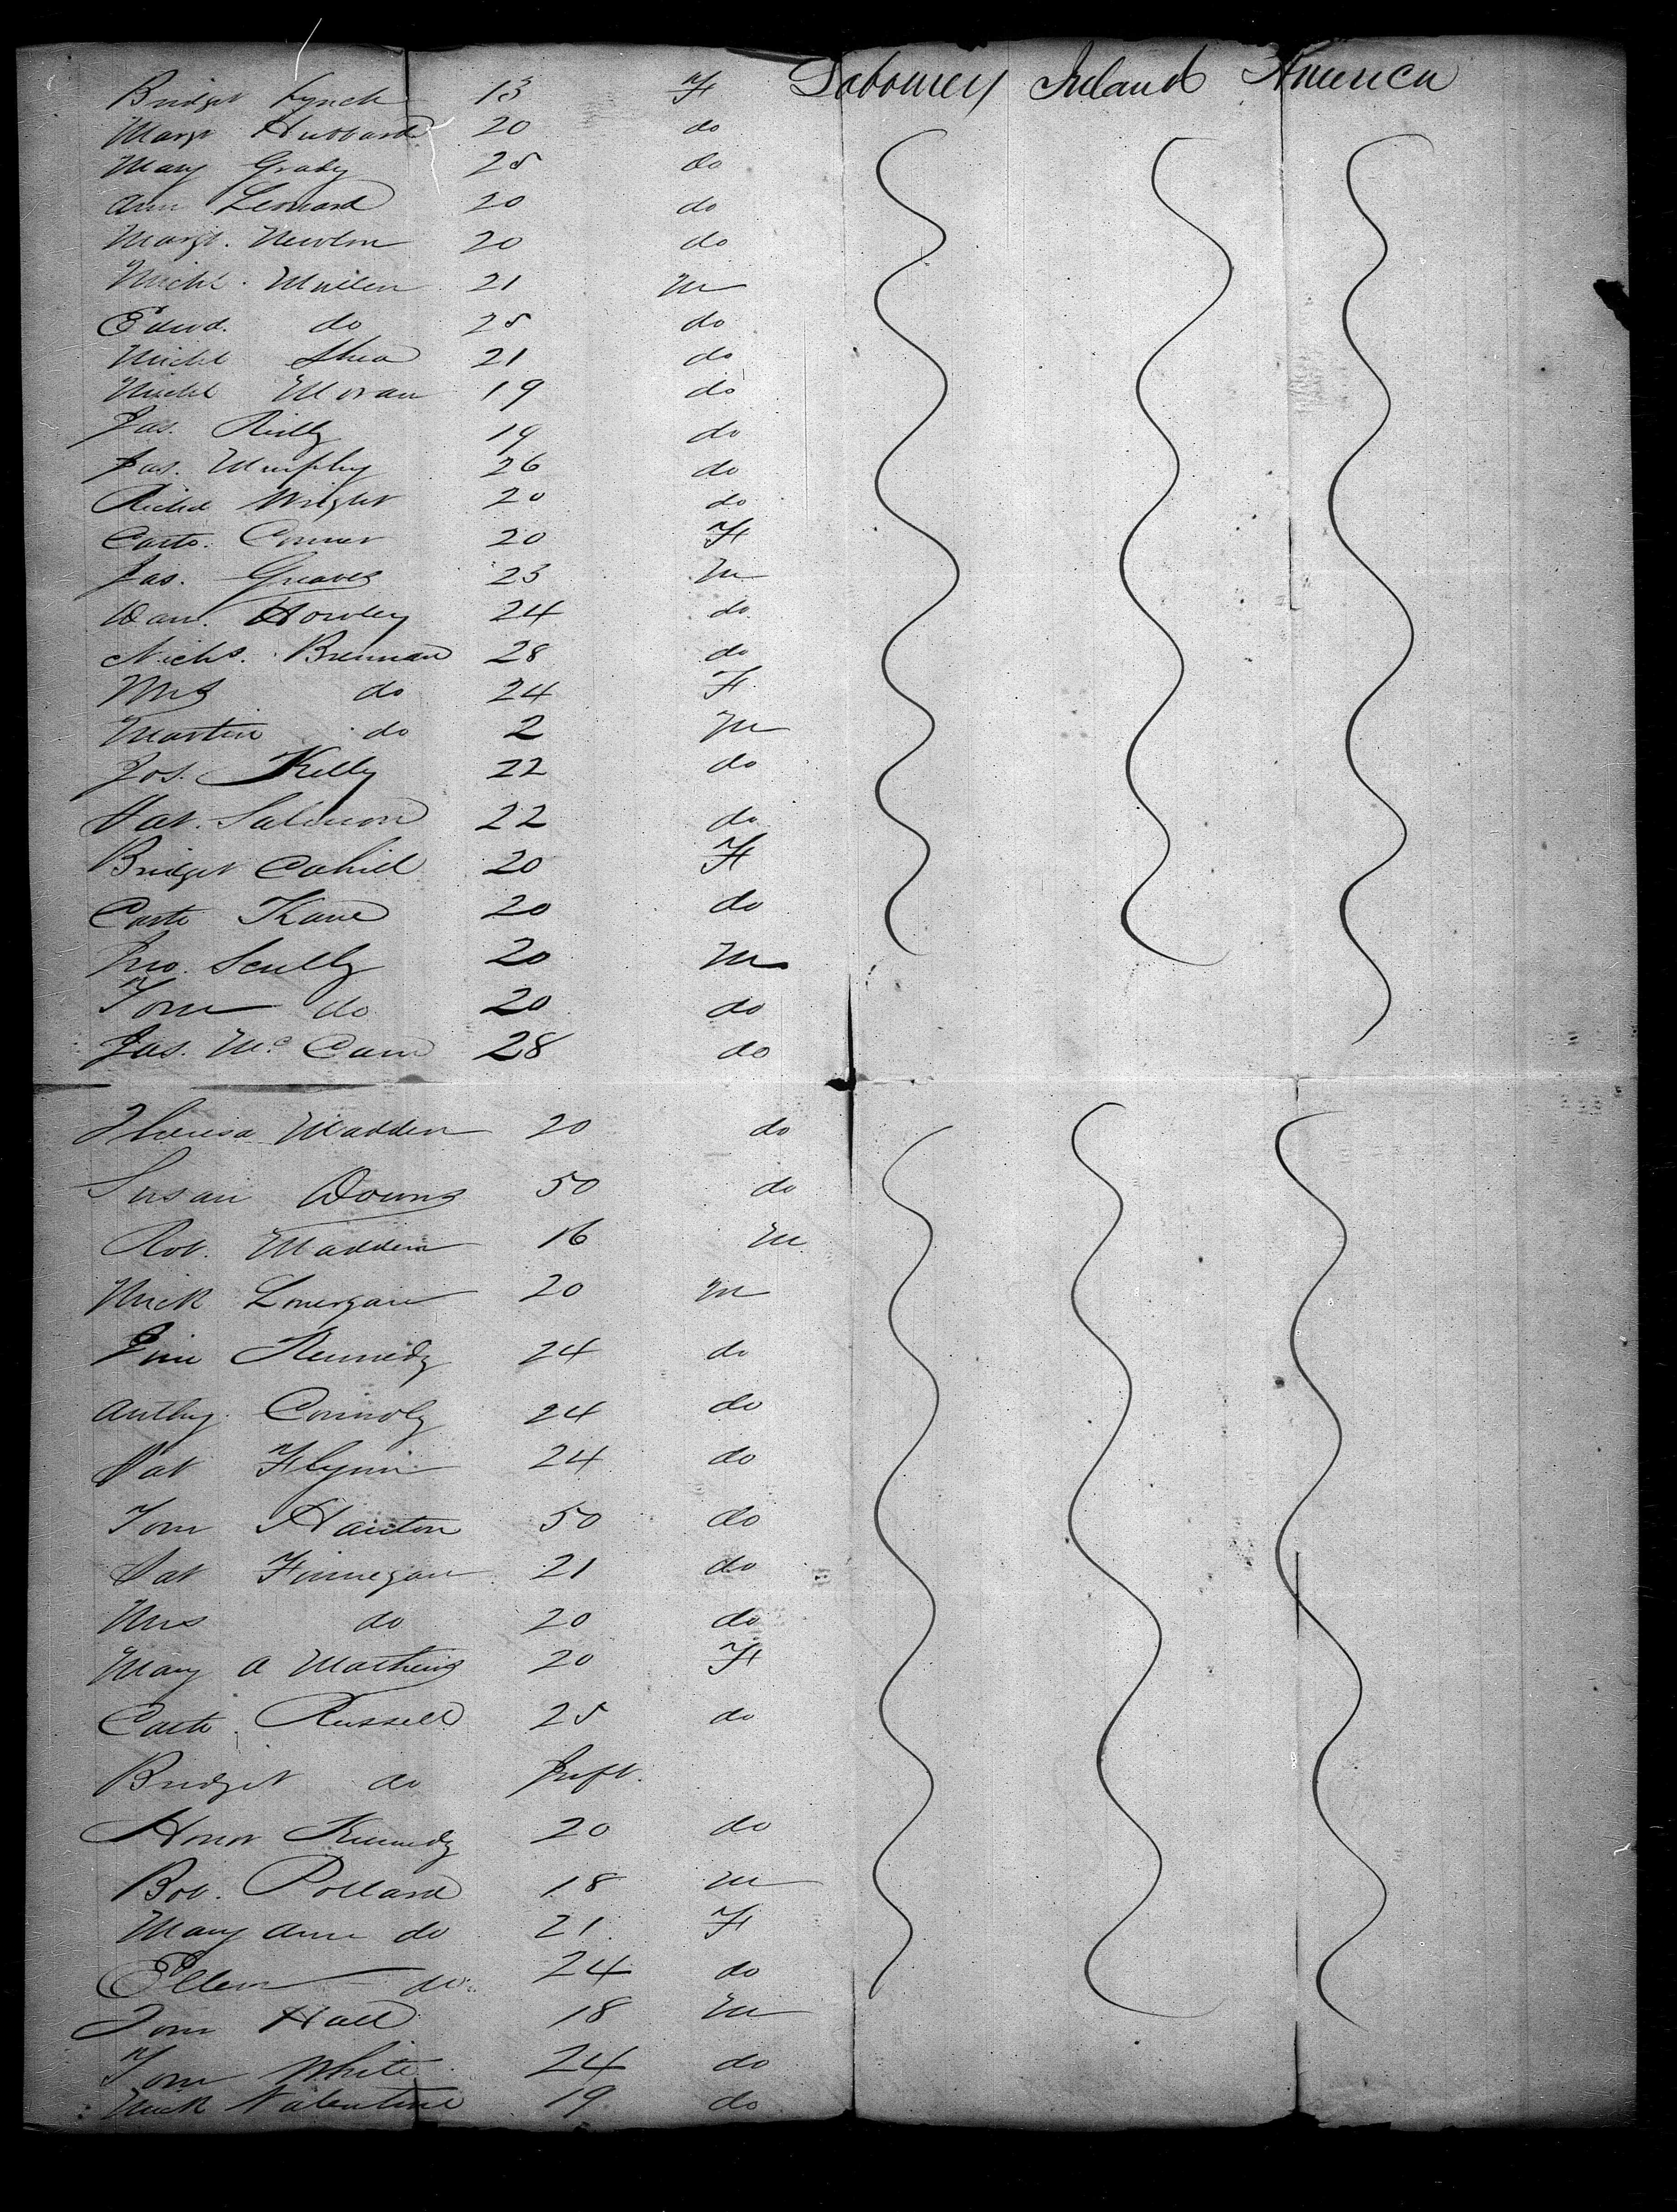 Bridget Lynch 13 F Labourer Ireland America
Margt Hubbard 20 do
Mary Grady 25 do
Ann Leonard 20 do
Margt. Newton 20 do
Michl. Mullen 21 M
Edwd. do 25 do
Michl Shea 21 do
Michl Moran 19 do
Jas. Reilly 19 do
Jas. Murphy 26 do
Richd Wright 20 do
Cath. Connor 20 F
Jas. Greaves 23 M
Danl. Howley 24 do
Nichs. Brennan 28 do
Mrs do 24 F
Martin do 2 M
Jos. Kelly 22 do
Pat. Salmon 22 do
Bridget Cahill 20 F
Cath Kane 20 do
Jno. Scully 20 M
Tom do 20 do
Jas. Mc Cann 28 do
Theresa Madden 20 do
Susan Downs 50 do
Rob. Madden 16 M
Mick Lonergan 20 M
Jim Kennedy 24 do
Anthy. Connoly 24 do
Pat Flynn 24 do
Tom Hanton 50 do
Pat Finnegan 21 do
Mrs do 20 do
Mary A Mathews 20 F
Cath. Russell 25 do
Bridget do Inft.
Honor Kennedy 20 do
Bob. Pollard 18 M
Mary Ann do 21 F
Ellen do 24 do
Tom Hall 18 M
Tom White 24 do
Mick Valentine 19 do